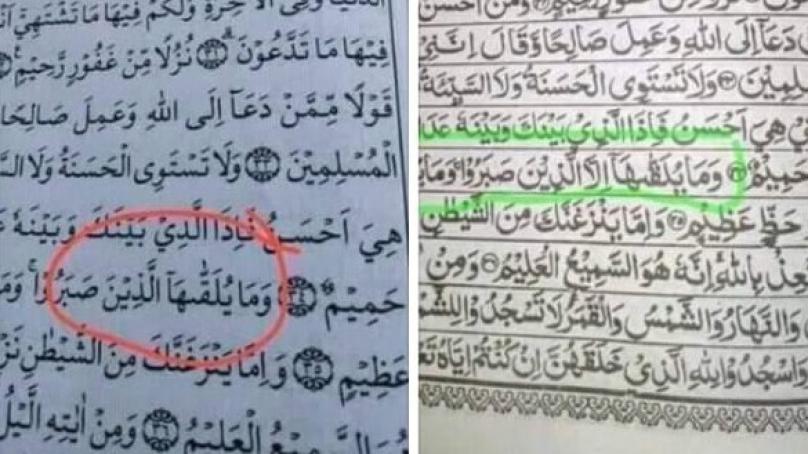 الدُّنْيَا وَفِى الْاٰخِرَةِ وَلَكُمْ فِيْهَا مَا تَشْتَهِيْٓ
فِيْهَا مَا تَدَّعُوْنَ ۝۳۱ نُزُلًا مِّنْ غَفُوْرٍ رَّحِيْمٍ
قَوْلًا مِّمَّنْ دَعَآ اِلَى اللهِ وَعَمِلَ صَالِحًا
الْمُسْلِمِيْنَ ۝۳۳ وَلَا تَسْتَوِي الْحَسَنَةُ وَلَا
هِيَ اَحْسَنُ فَاِذَا الَّذِيْ بَيْنَكَ وَبَيْنَهٗ
حَمِيْمٌ ۝۳۴ وَمَا يُلَقّٰىهَآ الَّذِيْنَ صَبَرُوْا ۚ
عَظِيْمٍ ۝۳۵ وَاِمَّا يَنْزَغَنَّكَ مِنَ الشَّيْطٰنِ
السَّمِيْعُ الْعَلِيْمُ ۝۳۶ وَمِنْ اٰيٰتِهِ الَّيْلُ
دَعَآ اِلَى اللهِ وَعَمِلَ صَالِحًا وَّقَالَ اِنَّنِيْ
وَلَا تَسْتَوِي الْحَسَنَةُ وَلَا السَّيِّئَةُ
هِيَ اَحْسَنُ فَاِذَا الَّذِيْ بَيْنَكَ وَبَيْنَهٗ
حَمِيْمٌ ۝۳۴ وَمَا يُلَقّٰىهَآ اِلَّا الَّذِيْنَ صَبَرُوْا ۚ
حَظٍّ عَظِيْمٍ ۝۳۵ وَاِمَّا يَنْزَغَنَّكَ مِنَ الشَّيْطٰنِ
بِاللهِ ؕ اِنَّهٗ هُوَ السَّمِيْعُ الْعَلِيْمُ ۝۳۶ وَمِنْ
وَالنَّهَارُ وَالشَّمْسُ وَالْقَمَرُ ؕ لَا تَسْجُدُوْا
وَاسْجُدُوْا لِلّٰهِ الَّذِيْ خَلَقَهُنَّ اِنْ كُنْتُمْ اِيَّاهُ